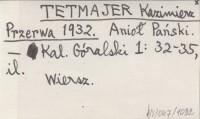 TETMAJER Kazimierz
Przerwa 1932. Anioł Pański.
— Kal. Góralski 1: 32-35,
il.
Wiersz.